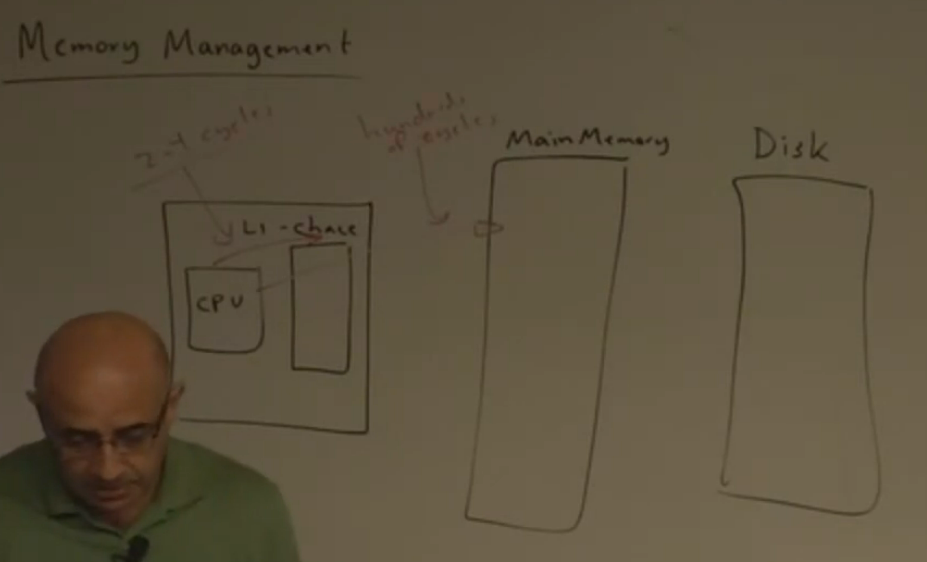 Memory Management
2-4 cycles
hundreds
of cycles
Main Memory
Disk
L1 - chace
CPU